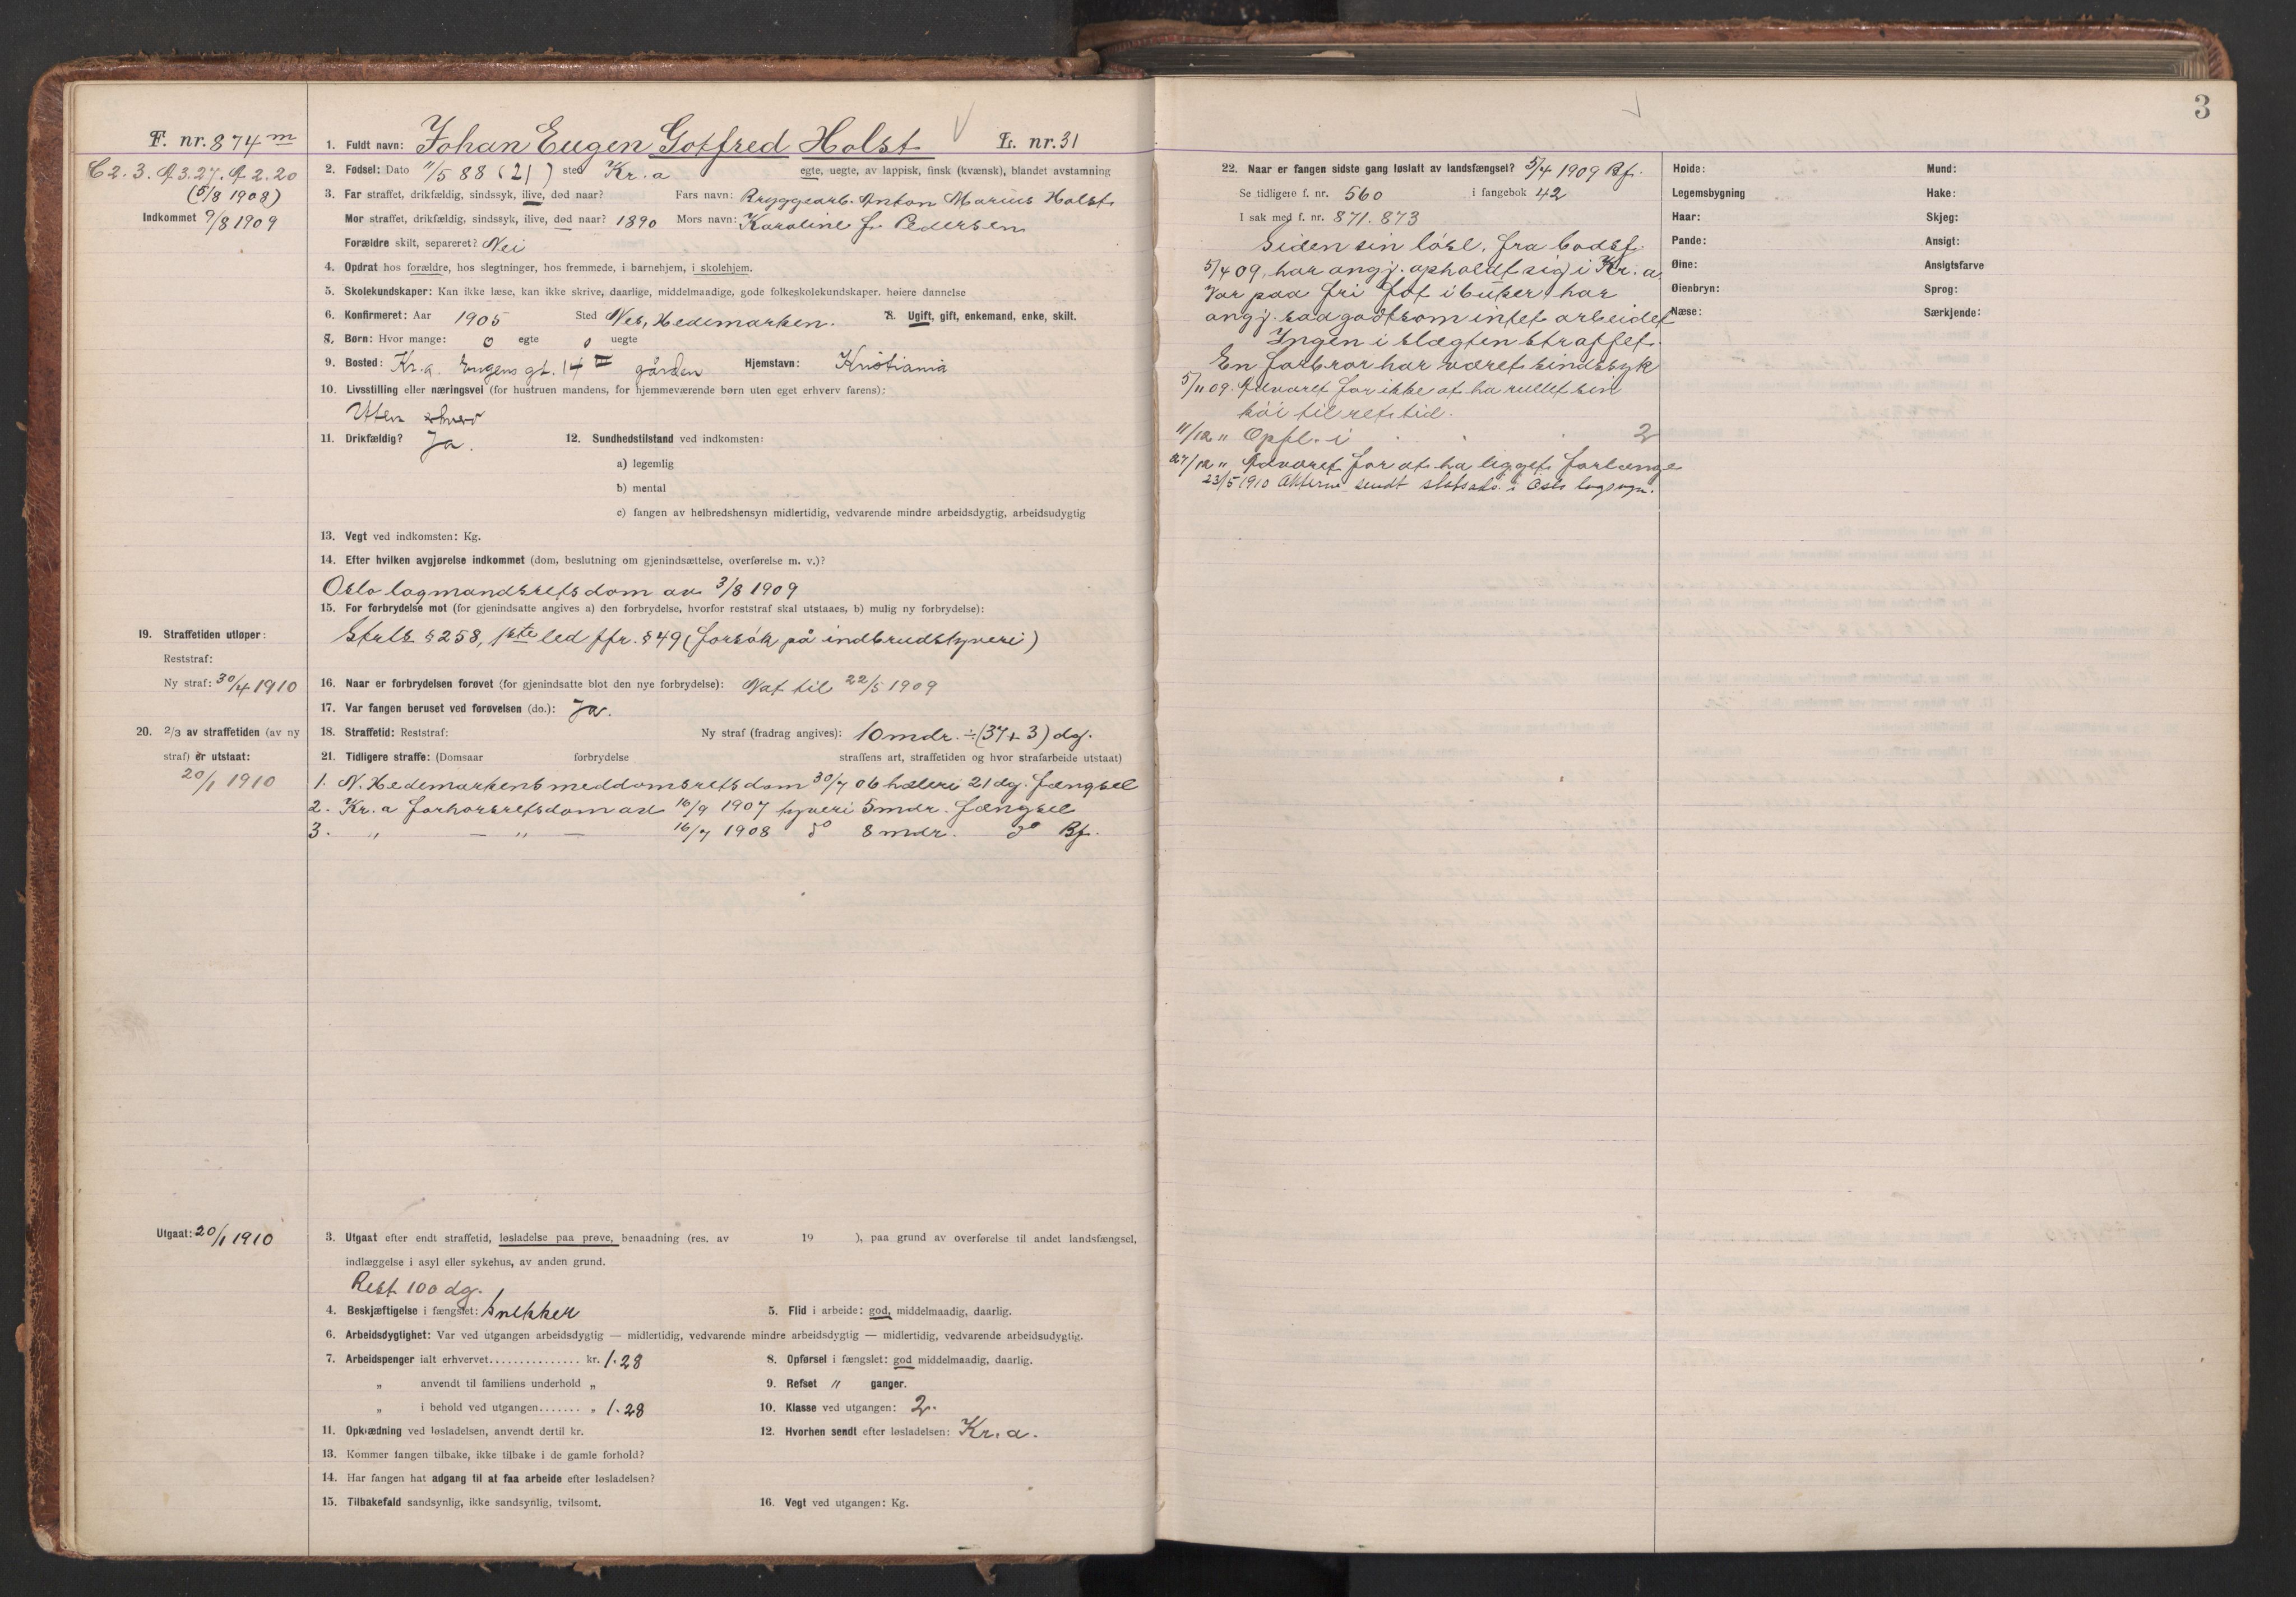 F. nr. 874 m
C 2. 3. A 3. 27. A 2. 20
(5/8 1908)
Indkommet 9/8 1909
1. Fuldt navn: Johan Eugen Gotfred Holst L. nr. 31
2. Fødsel: Dato 11/5 88 (21) sted Kr.a egte, uegte, av lappisk, finsk (kvænsk), blandet avstamning
3. Far straffet, drikfældig, sindssyk, ilive, død naar? Fars navn: Bryggearb. Anton Marius Holst
Mor straffet, drikfældig, sindssyk, ilive, død naar? 1890 Mors navn: Karoline f. Pedersen
Forældre skilt, separeret? Nei
4. Opdrat hos forældre, hos slegtninger, hos fremmede, i barnehjem, i skolehjem.
5. Skolekundskaper: Kan ikke læse, kan ikke skrive, daarlige, middelmaadige, gode folkeskolekundskaper. høiere dannelse
6. Konfirmeret: Aar 1905 Sted Nes, Hedemarken. 7. Ugift, gift, enkemand, enke, skilt.
8. Børn: Hvor mange: 0 egte 0 uegte
9. Bosted: Kr.a. Eugens gt. 14 III gården Hjemstavn: Kristiania
10. Livsstilling eller næringsvei (for hustruen mandens, for hjemmeværende børn uten eget erhverv farens):
Uten erhverv
11. Drikfældig? Ja. 12. Sundhedstilstand ved indkomsten:
a) legemlig
b) mental
c) fangen av helbredshensyn midlertidig, vedvarende mindre arbeidsdygtig, arbeidsudygtig
13. Vegt ved indkomsten: Kg.
14. Efter hvilken avgjørelse indkommet (dom, beslutning om gjenindsættelse, overførelse m. v.)?
Oslo lagmandsretsdom av 3/8 1909
15. For forbrydelse mot (for gjenindsatte angives a) den forbrydelse, hvorfor reststraf skal utstaaes, b) mulig ny forbrydelse):
Strls § 258, 1ste led jfr. § 49 (forsøk på indbrudstyveri)
19. Straffetiden utløper:
Reststraf:
Ny straf: 30/4 1910
16. Naar er forbrydelsen forøvet (for gjenindsatte blot den nye forbrydelse): Nat til 22/5 1909
17. Var fangen beruset ved forøvelsen (do.): Ja.
20. 2/3 av straffetiden (av ny
straf) er utstaat:
20/1 1910
18. Straffetid: Reststraf: Ny straf (fradrag angives): 10 mdr. ÷ (37 + 3) dg.
21. Tidligere straffe: (Domsaar forbrydelse straffens art, straffetiden og hvor strafarbeide utstaat)
1. N. Hedemarkens meddomsretsdom 30/7 06 hæleri 21 dg. fængsel
2. Kr.a forhørsretsdom av 16/9 1907 tyveri 5 mdr. fængsel
3. " — " — 16/7 1908 do 8 mdr. do Bf.
Utgaat: 20/1 1910
3. Utgaat efter endt straffetid, løsladelse paa prøve, benaadning (res. av 19 ), paa grund av overførelse til andet landsfængsel,
indlæggelse i asyl eller sykehus, av anden grund.
Rest 100 dg.
4. Beskjæftigelse i fængslet: Snekker 5. Flid i arbeide: god, middelmaadig, daarlig.
6. Arbeidsdygtighet: Var ved utgangen arbeidsdygtig — midlertidig, vedvarende mindre arbeidsdygtig — midlertidig, vedvarende arbeidsudygtig.
7. Arbeidspenger ialt erhvervet............... kr. 1.28 8. Opførsel i fængslet: god middelmaadig, daarlig.
„ anvendt til familiens underhold „ 9. Refset " ganger.
„ i behold ved utgangen....... „ 1.28 10. Klasse ved utgangen: 2.
11. Opklædning ved løsladelsen, anvendt dertil kr. 12. Hvorhen sendt efter løsladelsen: Kr.a.
13. Kommer fangen tilbake, ikke tilbake i de gamle forhold?
14. Har fangen hat adgang til at faa arbeide efter løsladelsen?
15. Tilbakefald sandsynlig, ikke sandsynlig, tvilsomt. 16. Vegt ved utgangen: Kg.
3
22. Naar er fangen sidste gang løslatt av landsfængsel? 5/4 1909 Bf.
Se tidligere f. nr. 560 i fangebok 42
I sak med f. nr. 871. 873
Siden sin løsl. fra bodsf.
5/4 09, har angj. opholdt sig i Kr.a.
Var paa fri fot i uker, har
angj. saagodtsom intet arbeidet
Ingen i slægten straffet.
En farbror har været sindssyk
5/11 09. Advaret for ikke at ha rullet sin
køi til ret tid.
11/12 " Opfl. i 2
27/12 " Advaret for at ha ligget forlænge
23/5 1910 Akterne sendt statsadv. i Oslo lagsogn.
Høide:
Legemsbygning
Haar:
Pande:
Øine:
Øienbryn:
Næse:
Mund:
Hake:
Skjeg:
Ansigt:
Ansigtsfarve
Sprog:
Særkjende: